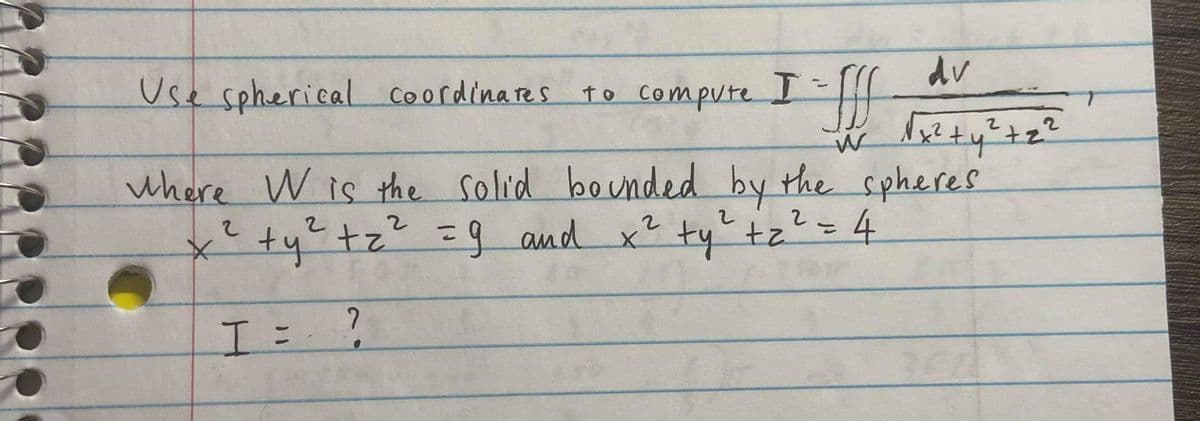 Use spherical coordinates to compute I = ∭_W dv / √x² + y² + z² ,
where W is the solid bounded by the spheres
x² + y² + z² = 9 and x² + y² + z² = 4
I = ?